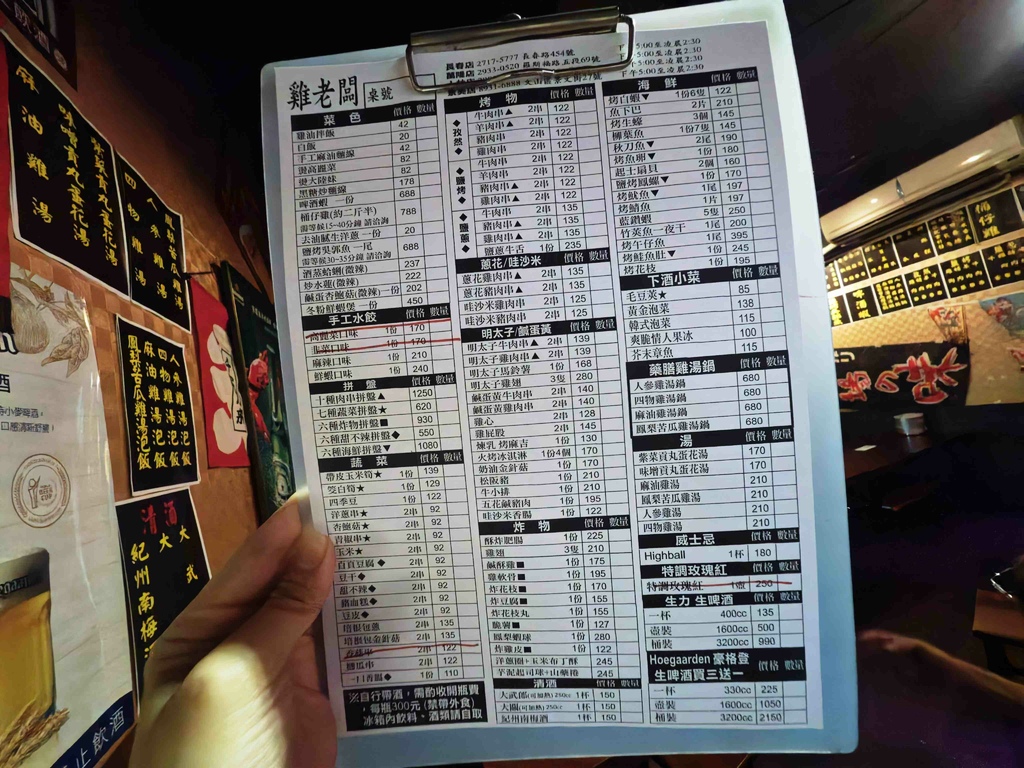 長春店 2717-5777 長春路454號
萬隆店 2933-0320 羅斯福路五段69號
下午5:00至凌晨2:30
下午5:00至凌晨2:30
雞老闆 桌號
菜色 價格 數量
雞油拌飯 42
白飯 20
手工麻油麵線 42
燙高麗菜 82
燙大陸妹 82
黑糖炒麵線 178
啤酒蝦 一份 688
桶仔雞(約二斤半) 788
需等候15~40分鐘 請洽詢
去油膩生洋蔥 一份 20
鹽烤吳郭魚 一尾 688
需等候30~35分鐘 請洽詢
酒蒸蛤蜊(微辣) 237
炒水蓮(微辣) 222
鹹蛋杏鮑菇(微辣) 一份 202
冬粉鮮蝦煲 一份 450
手工水餃 價格 數量
高麗菜口味 1份 170
韭菜口味 1份 170
麻辣口味 1份 210
鮮蝦口味 1份 240
拼盤 價格 數量
十種肉串拼盤▲ 1250
七種蔬菜拼盤★ 620
六種炸物拼盤■ 930
六種甜不辣拼盤◆ 550
六種海鮮拼盤▼ 1080
蔬菜 價格 數量
帶皮玉米筍★ 1份 139
筊白筍★ 1份 129
四季豆 1份 122
洋蔥串★ 2串 92
杏鮑菇★ 2串 92
青椒串★ 2串 92
玉米★ 2串 92
百頁豆腐◆ 2串 92
豆干◆ 2串 92
甜不辣◆ 2串 92
豬血糕◆ 2串 92
豆皮◆ 2串 92
培根包蔥 2串 135
培根包金針菇 2串 135
2串 122
絲瓜串 2串 122
一口香腸 1份 110
※自行帶酒,需酌收開瓶費
每瓶300元(禁帶外食)
冰箱內飲料、酒類請自取
烤物 價格 數量
◆孜然◆
牛肉串▲ 2串 122
羊肉串▲ 2串 122
豬肉串 2串 122
雞肉串 2串 122
◆鹽烤◆
牛肉串 2串 122
羊肉串 2串 122
豬肉串▲ 2串 122
雞肉串▲ 2串 122
◆鹽蔥◆
牛肉串 2串 135
豬肉串▲ 2串 135
雞肉串▲ 2串 135
鹽蔥牛舌 1份 235
蔥花/哇沙米 價格 數量
蔥花雞肉串▲ 2串 135
蔥花豬肉串▲ 2串 135
哇沙米雞肉串 2串 125
哇沙米豬肉串 2串 125
明太子/鹹蛋黃 價格 數量
明太子牛肉串▲ 2串 139
明太子雞肉串▲ 2串 139
明太子馬鈴薯 1份 168
明太子雞翅 3隻 280
鹹蛋黃牛肉串 2串 142
鹹蛋黃雞肉串 2串 142
雞心 2串 128
雞屁股 2串 145
煉乳 烤麻吉 1份 130
火烤冰淇淋 1份4個 170
奶油金針菇 1份 170
松阪豬 1份 210
牛小排 1份 210
五花鹹豬肉 1份 195
哇沙米香腸 1份 122
炸物 價格 數量
酥炸肥腸 1份 225
雞翅 3隻 210
鹹酥雞■ 1份 175
雞軟骨■ 1份 195
炸花枝■ 1份 170
炸豆腐■ 1份 155
炸花枝丸 1份 155
脆薯■ 1份 127
鳳梨蝦球 1份 280
炸雞皮■ 1份 122
洋蔥圈+玉米布丁酥 245
芋泥起司球+山藥捲 245
清酒 價格 數量
大武郎(可加熱)250cc 1杯 150
大關(可加熱)250cc 1杯 150
紀州南梅酒 1杯 150
海鮮 價格 數量
烤白蝦▼ 1份6隻 122
魚下巴 2片 210
烤生蠔 3個 145
柳葉魚 1份7隻 145
秋刀魚▼ 2尾 190
烤魚卵▼ 1份 180
起士扇貝 2個 160
鹽烤鳳螺▼ 1份 170
烤魷魚▼ 1尾 197
烤鯖魚 1片 197
藍鑽蝦 5隻 250
竹莢魚一夜干 1尾 200
烤午仔魚 1尾 395
烤鮭魚肚▼ 1份 245
烤花枝 1份 195
下酒小菜 價格 數量
毛豆莢★ 85
黃金泡菜 138
韓式泡菜 115
爽脆情人果冰 100
芥末章魚 115
藥膳雞湯鍋 價格 數量
人參雞湯鍋 680
四物雞湯鍋 680
麻油雞湯鍋 680
鳳梨苦瓜雞湯鍋 680
湯 價格 數量
紫菜貢丸蛋花湯 170
味增貢丸蛋花湯 170
麻油雞湯 210
鳳梨苦瓜雞湯 210
人參雞湯 210
四物雞湯 210
威士忌 價格 數量
Highball 1杯 180
特調玫瑰紅 價格 數量
特調玫瑰紅 1壺 250
生力 生啤酒 價格 數量
一杯 400cc 135
壺裝 1600cc 500
桶裝 3200cc 990
Hoegaarden 豪格登
生啤酒買三送一 價格 數量
一杯 330cc 225
壺裝 1600cc 1050
桶裝 3200cc 2150
麻油雞湯
味噌貢丸蛋花湯
紫菜貢丸蛋花湯
四物雞湯
人參雞湯
鳳梨苦瓜雞湯
人參雞湯泡飯
四物雞湯泡飯
麻油雞湯泡飯
鳳梨苦瓜雞湯泡飯
清酒
大武
大
紀州南梅
桶仔雞
止飲酒